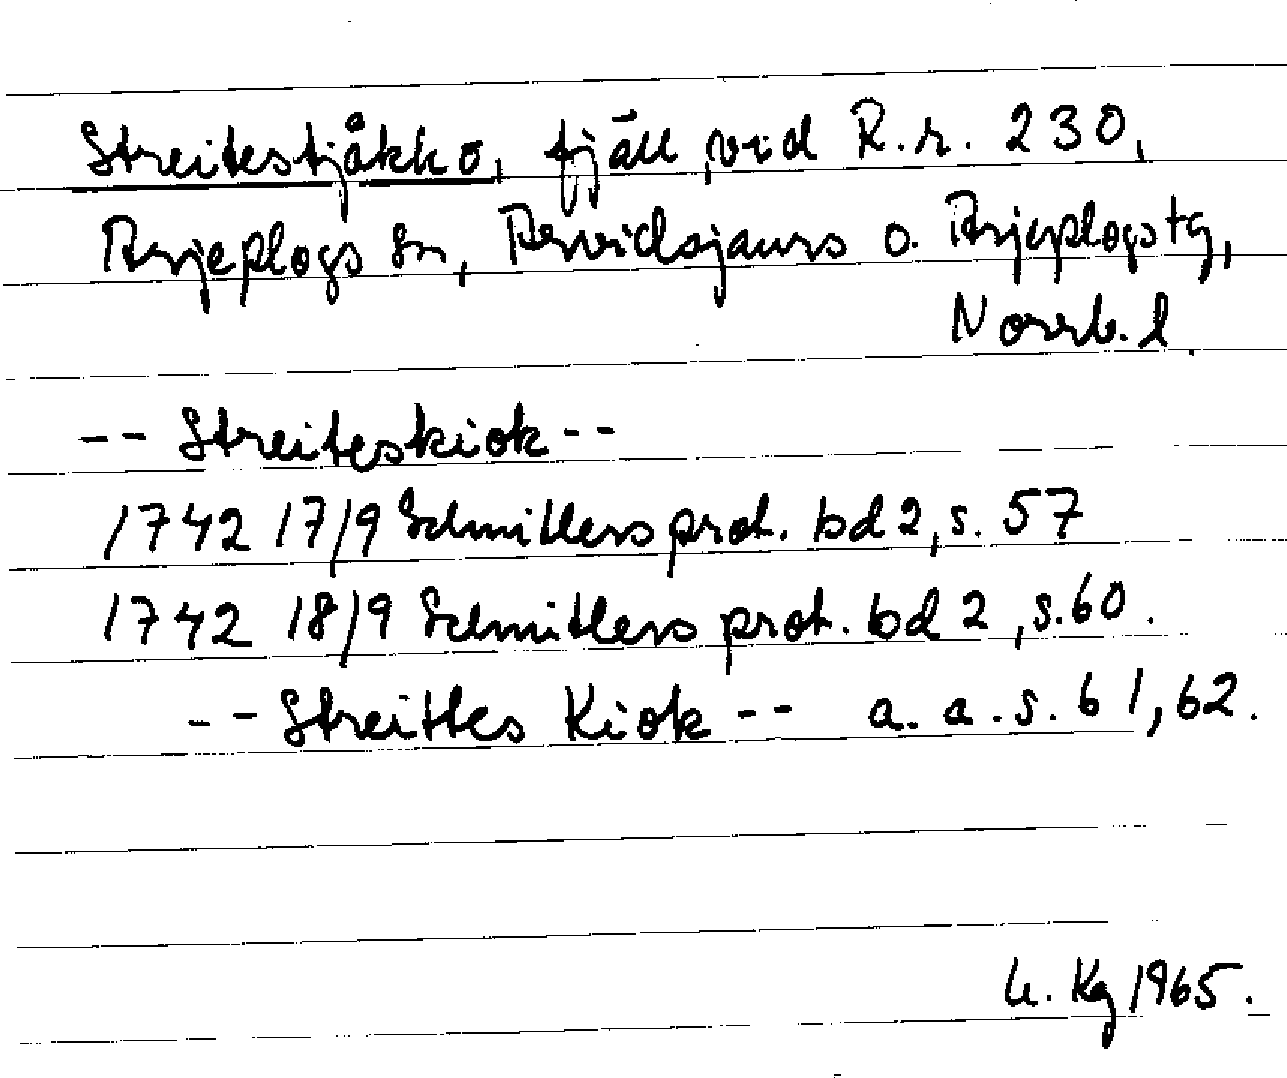 Streitestjåkkå, fjäll vid R.r. 230,
Arjeplogs sn, Arvidsjaurs o. Arjeplogs tg,
Norrb. l.
-- Streiteskiok --
1742 17/9 Schnitlers prot. bd 2, s. 57
1742 18/9 Schnitlers prot. bd 2, s. 60.
-- Streittes Kiok -- a. a. s. 61, 62.
Kg 1965.